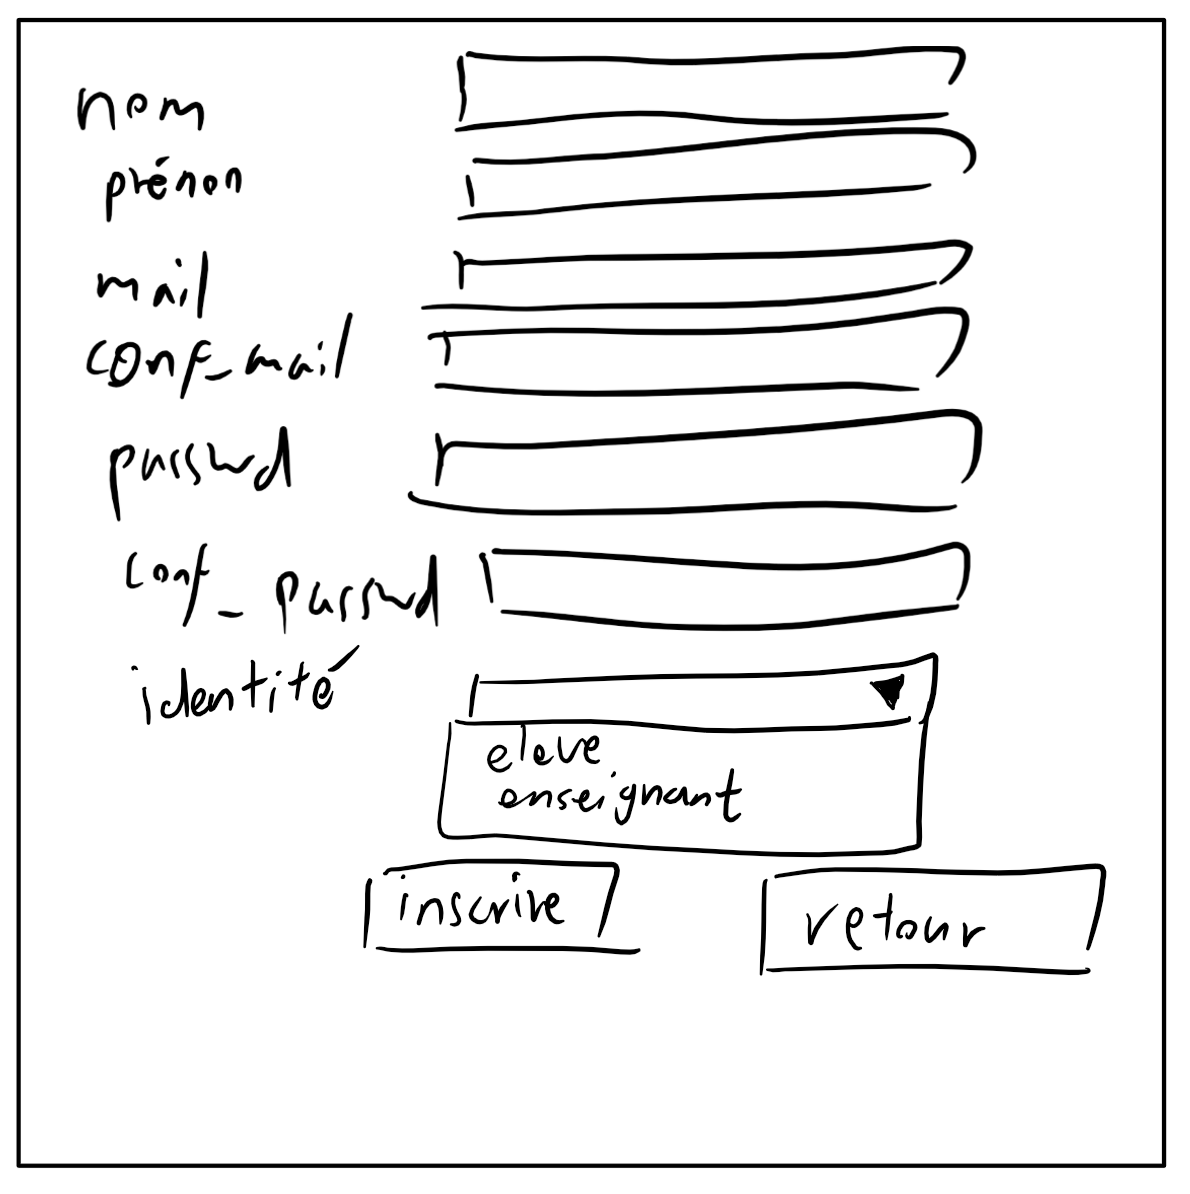 nom
prénon
mail
conf_mail
passwd
conf_passwd
identité
eleve
enseignant
inscrire
retour